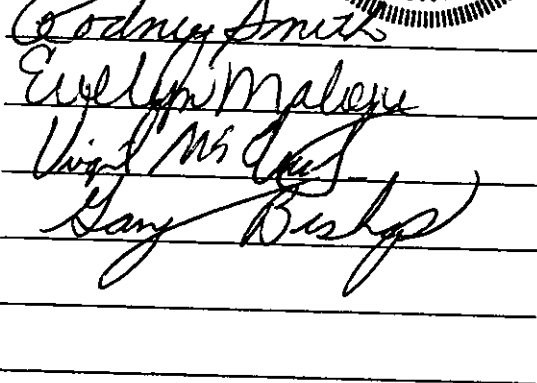 Rodney Smith
Evelyn Malone
Virgil
Gary Bishop